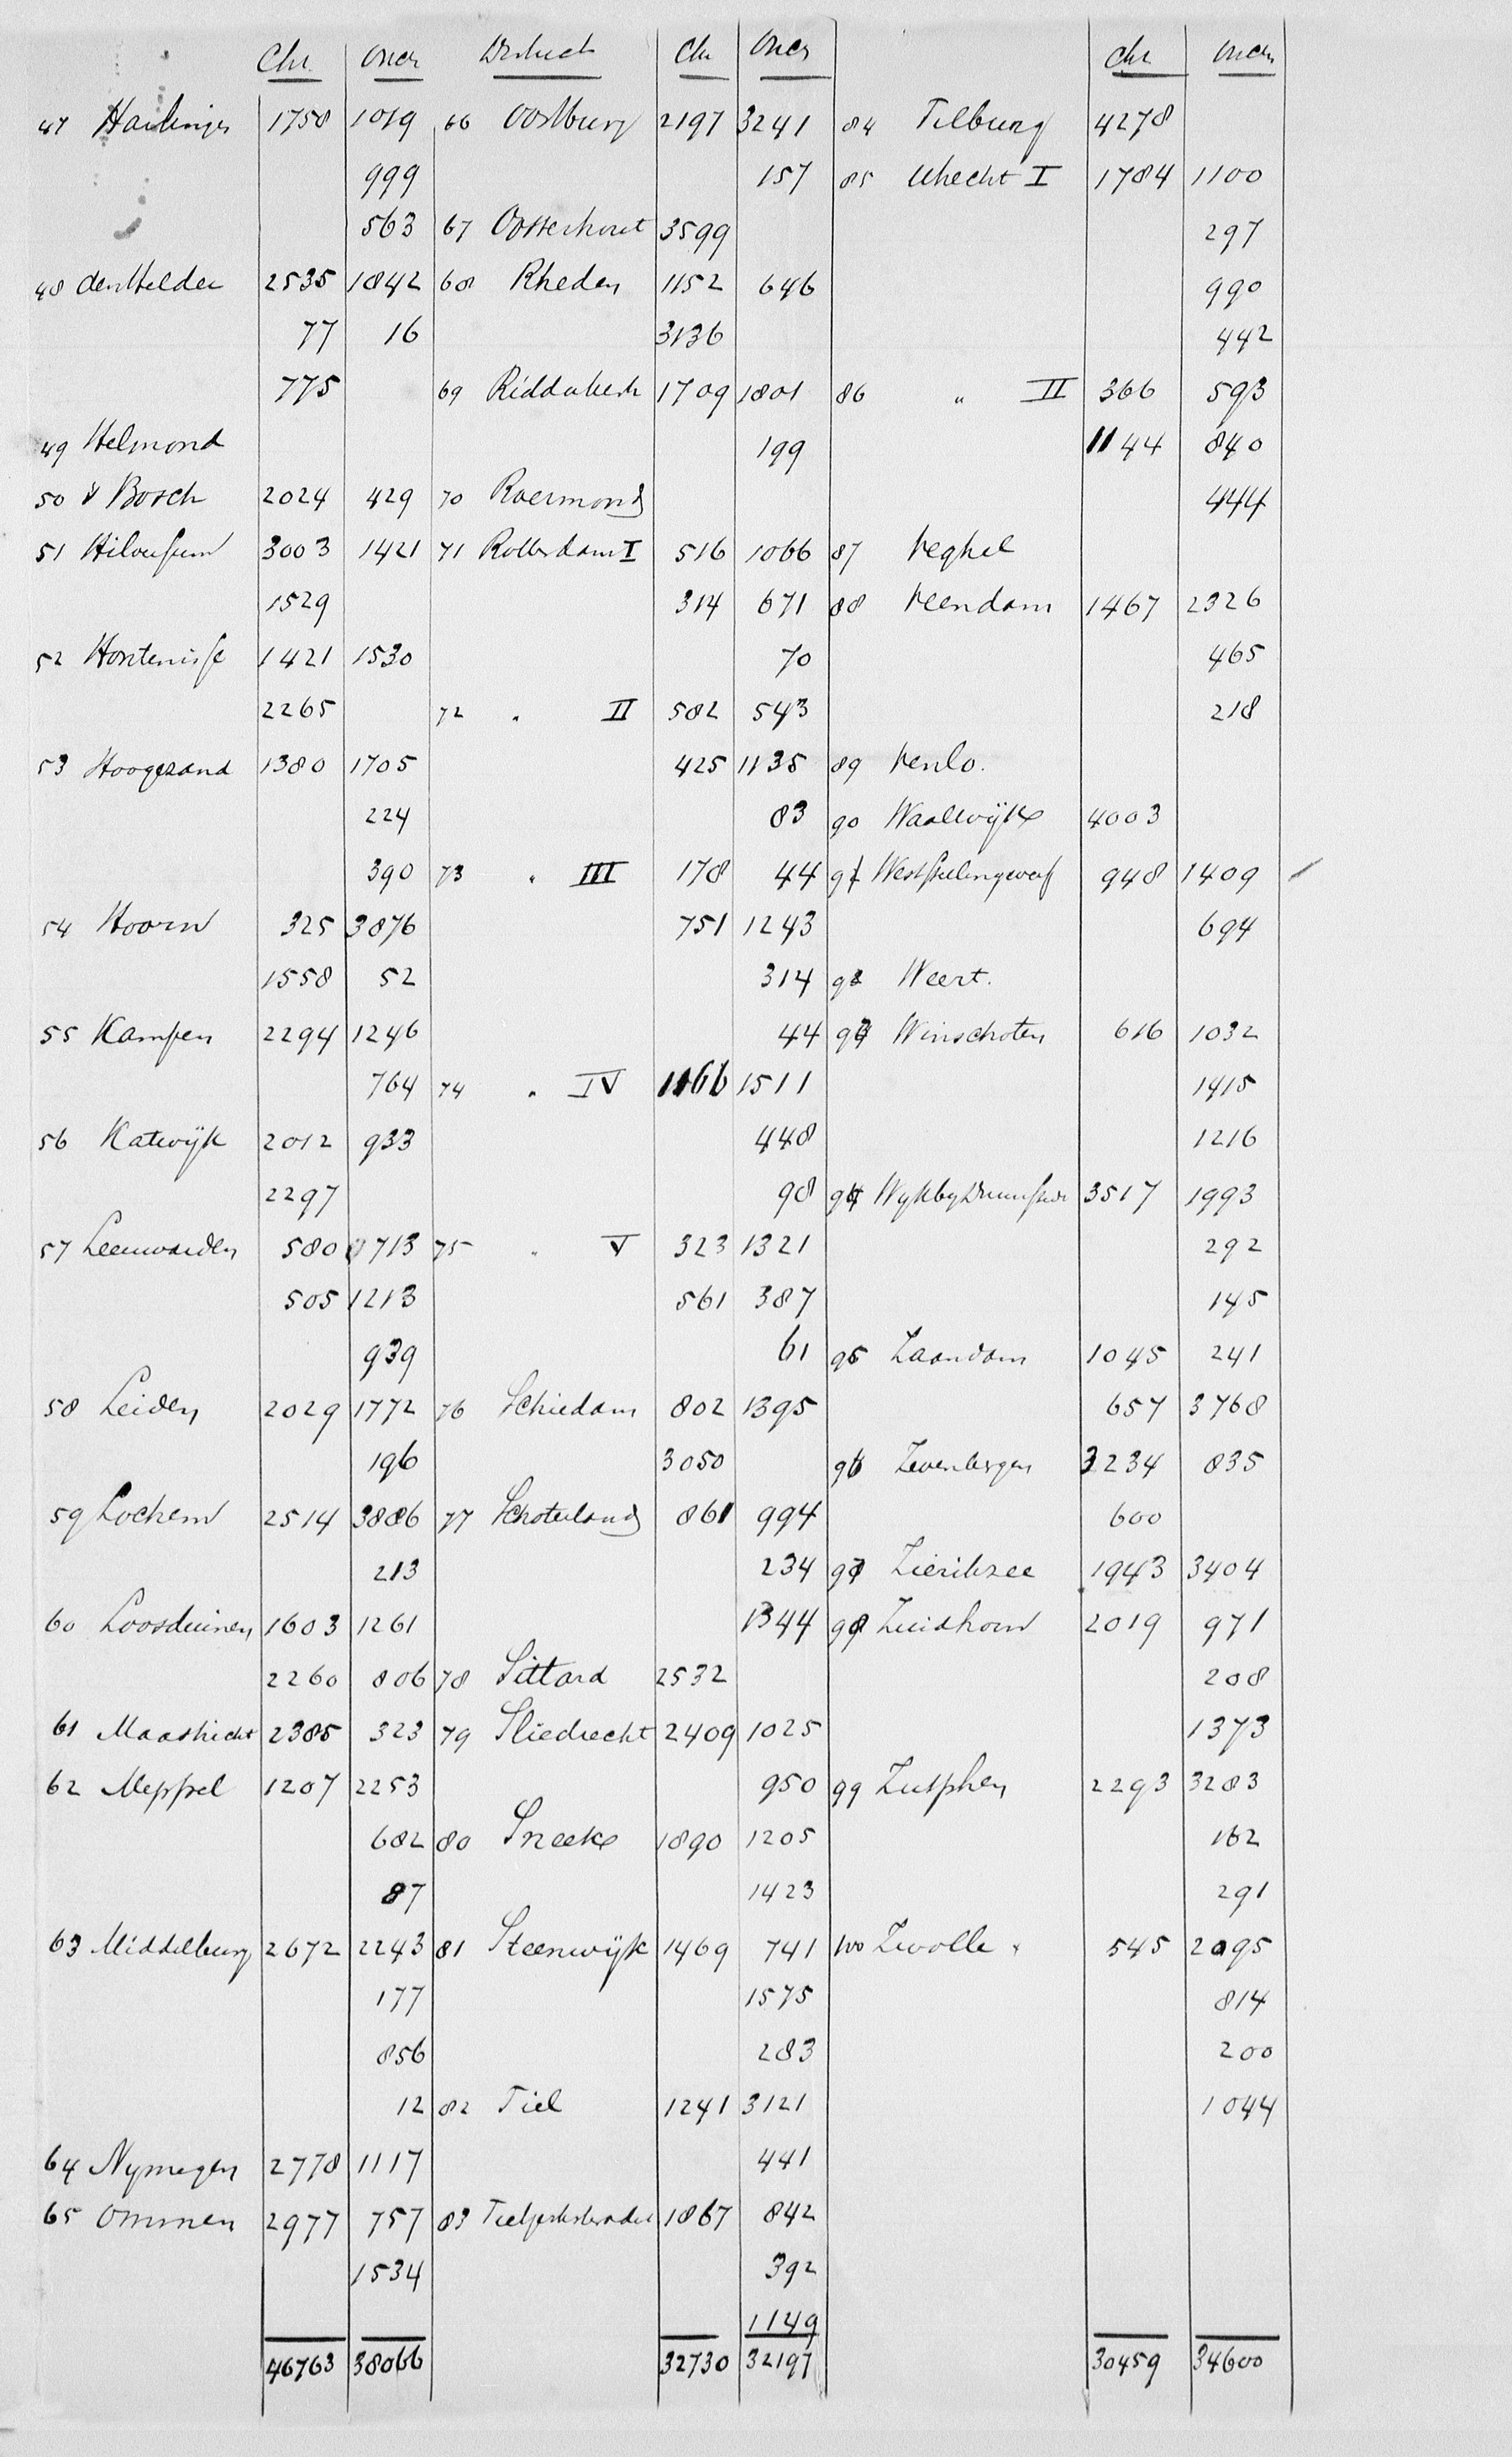 Chr. Oner District Chr Oner Chr Oner
47 Harlingen 1758 1019 66 Oostburg 2197 3241 84 Tilburg 4278
999 157 85 Utrecht I 1784 1100
563 67 Oosterhout 3599 297
48 den Helder 2535 1842 68 Rheden 1152 646 990
77 16 3136 442
775 69 Ridderkerk 1709 1801 86 " II 366 593
49 Helmond 199 1144 840
50 's Bosch 2024 429 70 Roermond 444
51 Hilversum 3003 1421 71 Rotterdam I 516 1066 87 Veghel
1529 314 671 88 Veendam 1467 2326
52 Hontenisse 1421 1530 70 465
2265 72 " II 582 543 218
53 Hoogezand 1380 1705 425 1135 89 Venlo.
224 83 90 Waalwijk 4003
390 73 " III 178 44 91 Weststellingwerf 948 1409
54 Hoorn 325 3876 751 1243 694
1558 52 314 92 Weert.
55 Kampen 2294 1246 44 93 Winschoten 616 1032
764 74 " IV 1166 1511 1415
56 Katwijk 2012 933 448 1216
2297 98 94 Wyk by Duurstede 3517 1993
57 Leeuwarden 580 713 75 " V 323 1321 292
505 1213 561 387 145
939 61 95 Zaandam 1045 241
58 Leiden 2029 1772 76 Schiedam 802 1395 657 3768
196 3050 96 Zevenbergen 3234 835
59 Lochem 2514 3886 77 Schoterland 861 994 600
213 234 97 Zierikzee 1943 3404
60 Loosduinen 1603 1261 1344 98 Zuidhorn 2019 971
2260 806 78 Sittard 2532 208
61 Maastricht 2385 323 79 Sliedrecht 2409 1025 1373
62 Meppel 1207 2253 950 99 Zutphen 2293 3283
682 80 Sneek 1890 1205 162
87 1423 291
63 Middelburg 2672 2243 81 Steenwijk 1469 741 100 Zwolle 545 2095
177 1575 814
856 283 200
12 82 Tiel 1241 3121 1044
64 Nymegen 2778 1117 441
65 Ommen 2977 757 83 Tietjerksteradeel 1867 842
1534 392
1149
46763 38066 32730 32197 30459 34600